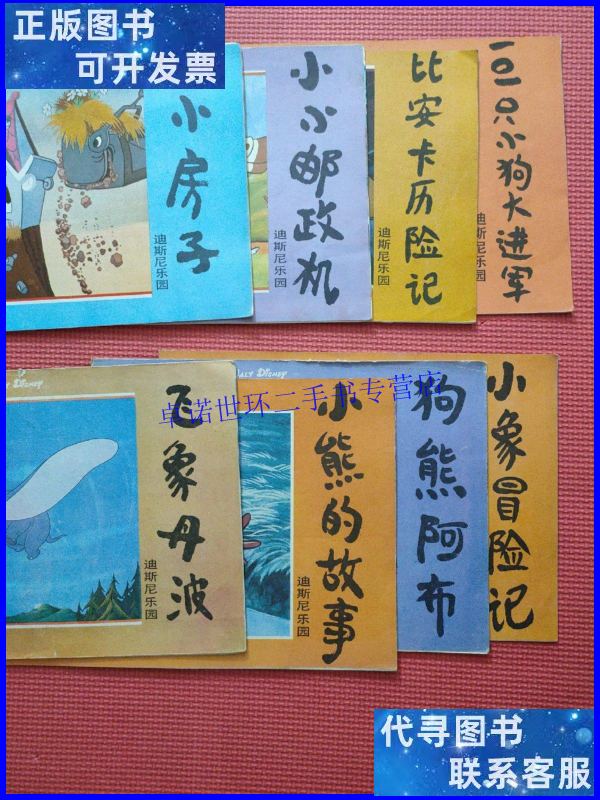 正版图书
可开发票
小房子
迪斯尼乐园
小小邮政机
比安卡历险记
迪斯尼乐园
一〇一只小狗大进军
迪斯尼乐园
飞象丹波
迪斯尼乐园
WALT DISNEY
小熊的故事
迪斯尼乐园
狗熊阿布
小象冒险记
卓诺世环二手书专营店
代寻图书
联系客服